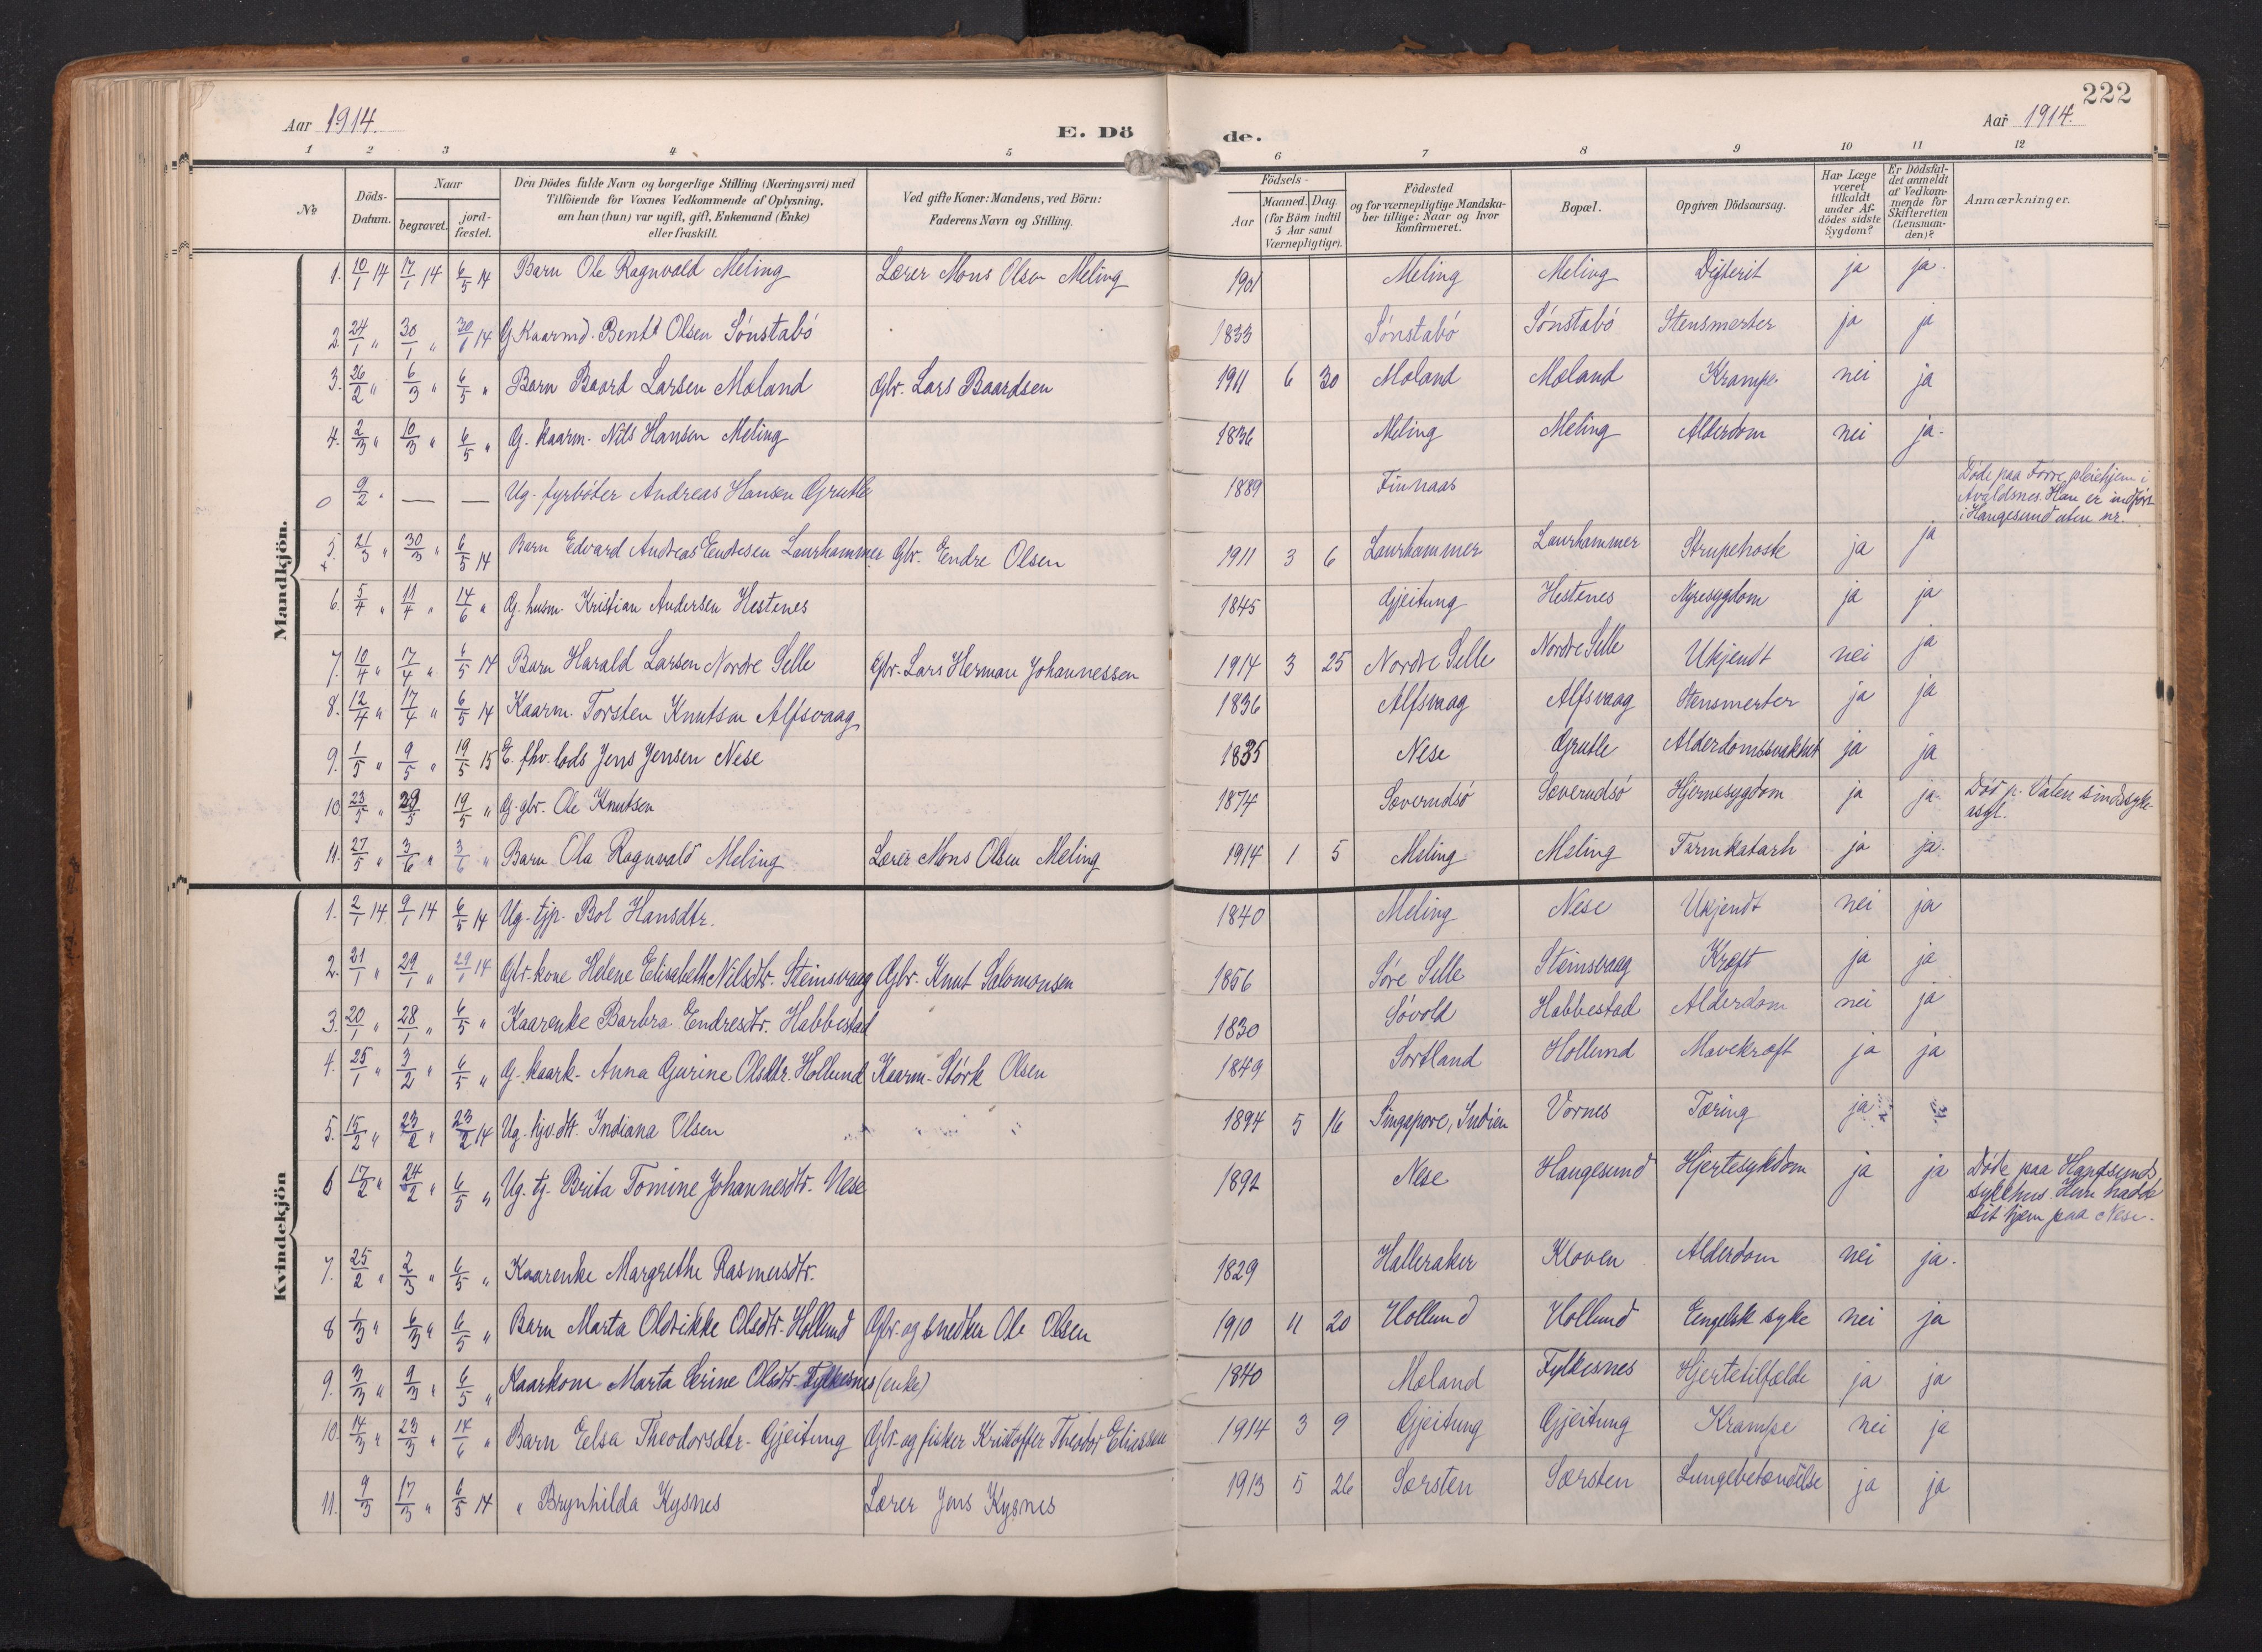 222
Aar 1914.
E. Dö
de.
Aar 1914.
1 2 3 4 5 6 7 8 9 10 11 12
№
Döds-
Datum.
Naar
begravet.
jord-
fæstet.
Den Dödes fulde Navn og borgerlige Stilling (Næringsvei) med
Tilföiende for Voxnes Vedkommende af Oplysning,
om han (hun) var ugift, gift, Enkemand (Enke)
eller fraskilt.
Ved gifte Koner: Mandens, ved Börn:
Faderens Navn og Stilling.
Födsels-
Aar
Maaned. Dag.
(for Börn indtil
5 Aar samt
Værnepligtige).
Födested
og for værnepligtige Mandska-
ber tillige: Naar og hvor
konfirmeret.
Bopæl.
Opgiven Dödsaarsag.
Har Læge
været
tilkaldt
under Af-
dödes sidste
Sygdom?
Er Dödsfal-
det anmeldt
af Vedkom-
mende for
Skifteretten
(Lensman-
den)?
Anmærkninger.
Mandkjön.
1. 10/1 14 17/1 14 6/5 14 Barn Ole Ragnvald Meling Lærer Mons Olsen Meling 1901 Meling Meling Difterit ja ja.
2. 24/1 " 30/1 " 30/1 14 G. Kaarmd. Bent Olsen Sönstabö 1833 Sönstabö Sönstabö Stensmerter ja ja
3. 26/2 " 6/3 " 6/5 " Barn Baard Larsen Moland Gbr. Lars Baardsen 1911 6 30 Moland Moland Krampe. nei ja
4. 2/3 " 10/3 " 6/5 " G. kaarm. Nils Hansen Meling 1836 Meling Meling Alderdom nei ja.
0 9/2 " — — Ug. fyrböter Andreas Hansen Grutle 1889 Finnaas Döde paa Forre pleiehjem i
Avaldsnes. Han er indfört
i Haugesund uten nr.
5. 21/3 " 30/3 " 6/5 14 Barn Edvard Andreas Endresen Laurhammer Gbr. Endre Olsen 1911 3 6 Laurhammer Laurhammer Strupehoste ja ja
6. 5/4 " 11/4 " 14/6 " G. husm. Kristian Andersen Hestenes 1845 Gjeitung Hestenes Nyresygdom ja ja
7. 10/4 " 17/4 " 6/5 14 Barn Harald Larsen Nordre Selle Gbr. Lars Herman Johannessen 1914 3 25 Nordre Selle Nordre Selle Ukjendt nei ja
8. 12/4 " 17/4 " 6/5 14 Kaarm. Torsten Knutsen Alfsvaag 1836 Alfsvaag Alfsvaag Stensmerter ja ja
9. 1/5 " 9/5 " 19/5 15 E. fhv. lods Jens Jensen Nese 1835 Nese Grutle Alderdomssvakhet ja ja
10 23/5 " 29/5 19/5 " G. gbr. Ole Knutsen 1874 Sæverudsö Sæverudsö Hjernesygdom ja ja. Död p. Valen sindssyke-
asyl.
11. 27/5 " 3/6 " 3/6 " Barn Ola Ragnvald Meling Lærer Mons Olsen Meling 1914 1 5 Meling Meling Tarmkatarh ja ja.
Kvindekjön
1. 2/1 14. 9/1 14 6/5 14 Ug. tjp. Bol Hansdtr. 1840 Meling Nese Ukjendt nei ja
2. 21/1 " 29/1 " 29/1 14 Gbr. kone Helene Elisabeth Nilsdtr. Steinsvaag Gbr. Knut Salomonsen 1856 Söre Selle Steinsvaag Kræft ja ja
3. 20/1 " 28/1 " 6/5 " Kaarenke Barbra Endresdtr. Habbestad 1830 Lövold Habbestad Alderdom nei ja
4. 25/1 " 3/2 " 6/5 " G. kaark. Anna Gurine Olsdtr. Hollund Kaarm. Störk Olsen 1849 Sortland Hollund Mavekræft ja ja
5. 15/2 " 23/2 " 23/2 14 Ug. hjv. dtr. Indiana Olsen 1894 5 16 Singapore, Indien Vornes Tæring ja
6 17/2 " 24/2 " 6/5 " Ug. tj. Brita Tomine Johannesdtr. Nese 1892 Nese Haugesund Hjertesykdom ja ja Döde paa Haugesunds
sykehus. Hun hadde
sit hjem paa Nese.
7. 25/2 " 2/3 " 6/5 " Kaarenke Margrethe Rasmusdtr. 1829 Halleraker Kloven Alderdom nei ja.
8 1/3 " 6/3 " 6/5 " Barn Marta Oldrikke Olsdtr. Hollund Gbr. og snedker Ole Olsen 1910 11 20 Hollund Hollund Engelsk syke nei ja
9. 3/3 " 9/3 " 6/5 " Kaarkone Marta Serine Olsdtr. Fylkesnes (enke) 1840 Moland Fylkesnes Hjertetilfælde ja ja
10. 14/3 " 23/3 " 14/6 " Barn Elsa Theodorsdtr. Gjeitung Gbr. og fisker Kristoffer Theodor Eliassen 1914 3 9 Gjeitung Gjeitung Krampe nei ja
11. 9/3 17/3 " 6/5 14 " Brynhilda Kysnes Lærer Jens Kysnes 1913 5 26 Særsten Særsten Lungebetændelse ja ja